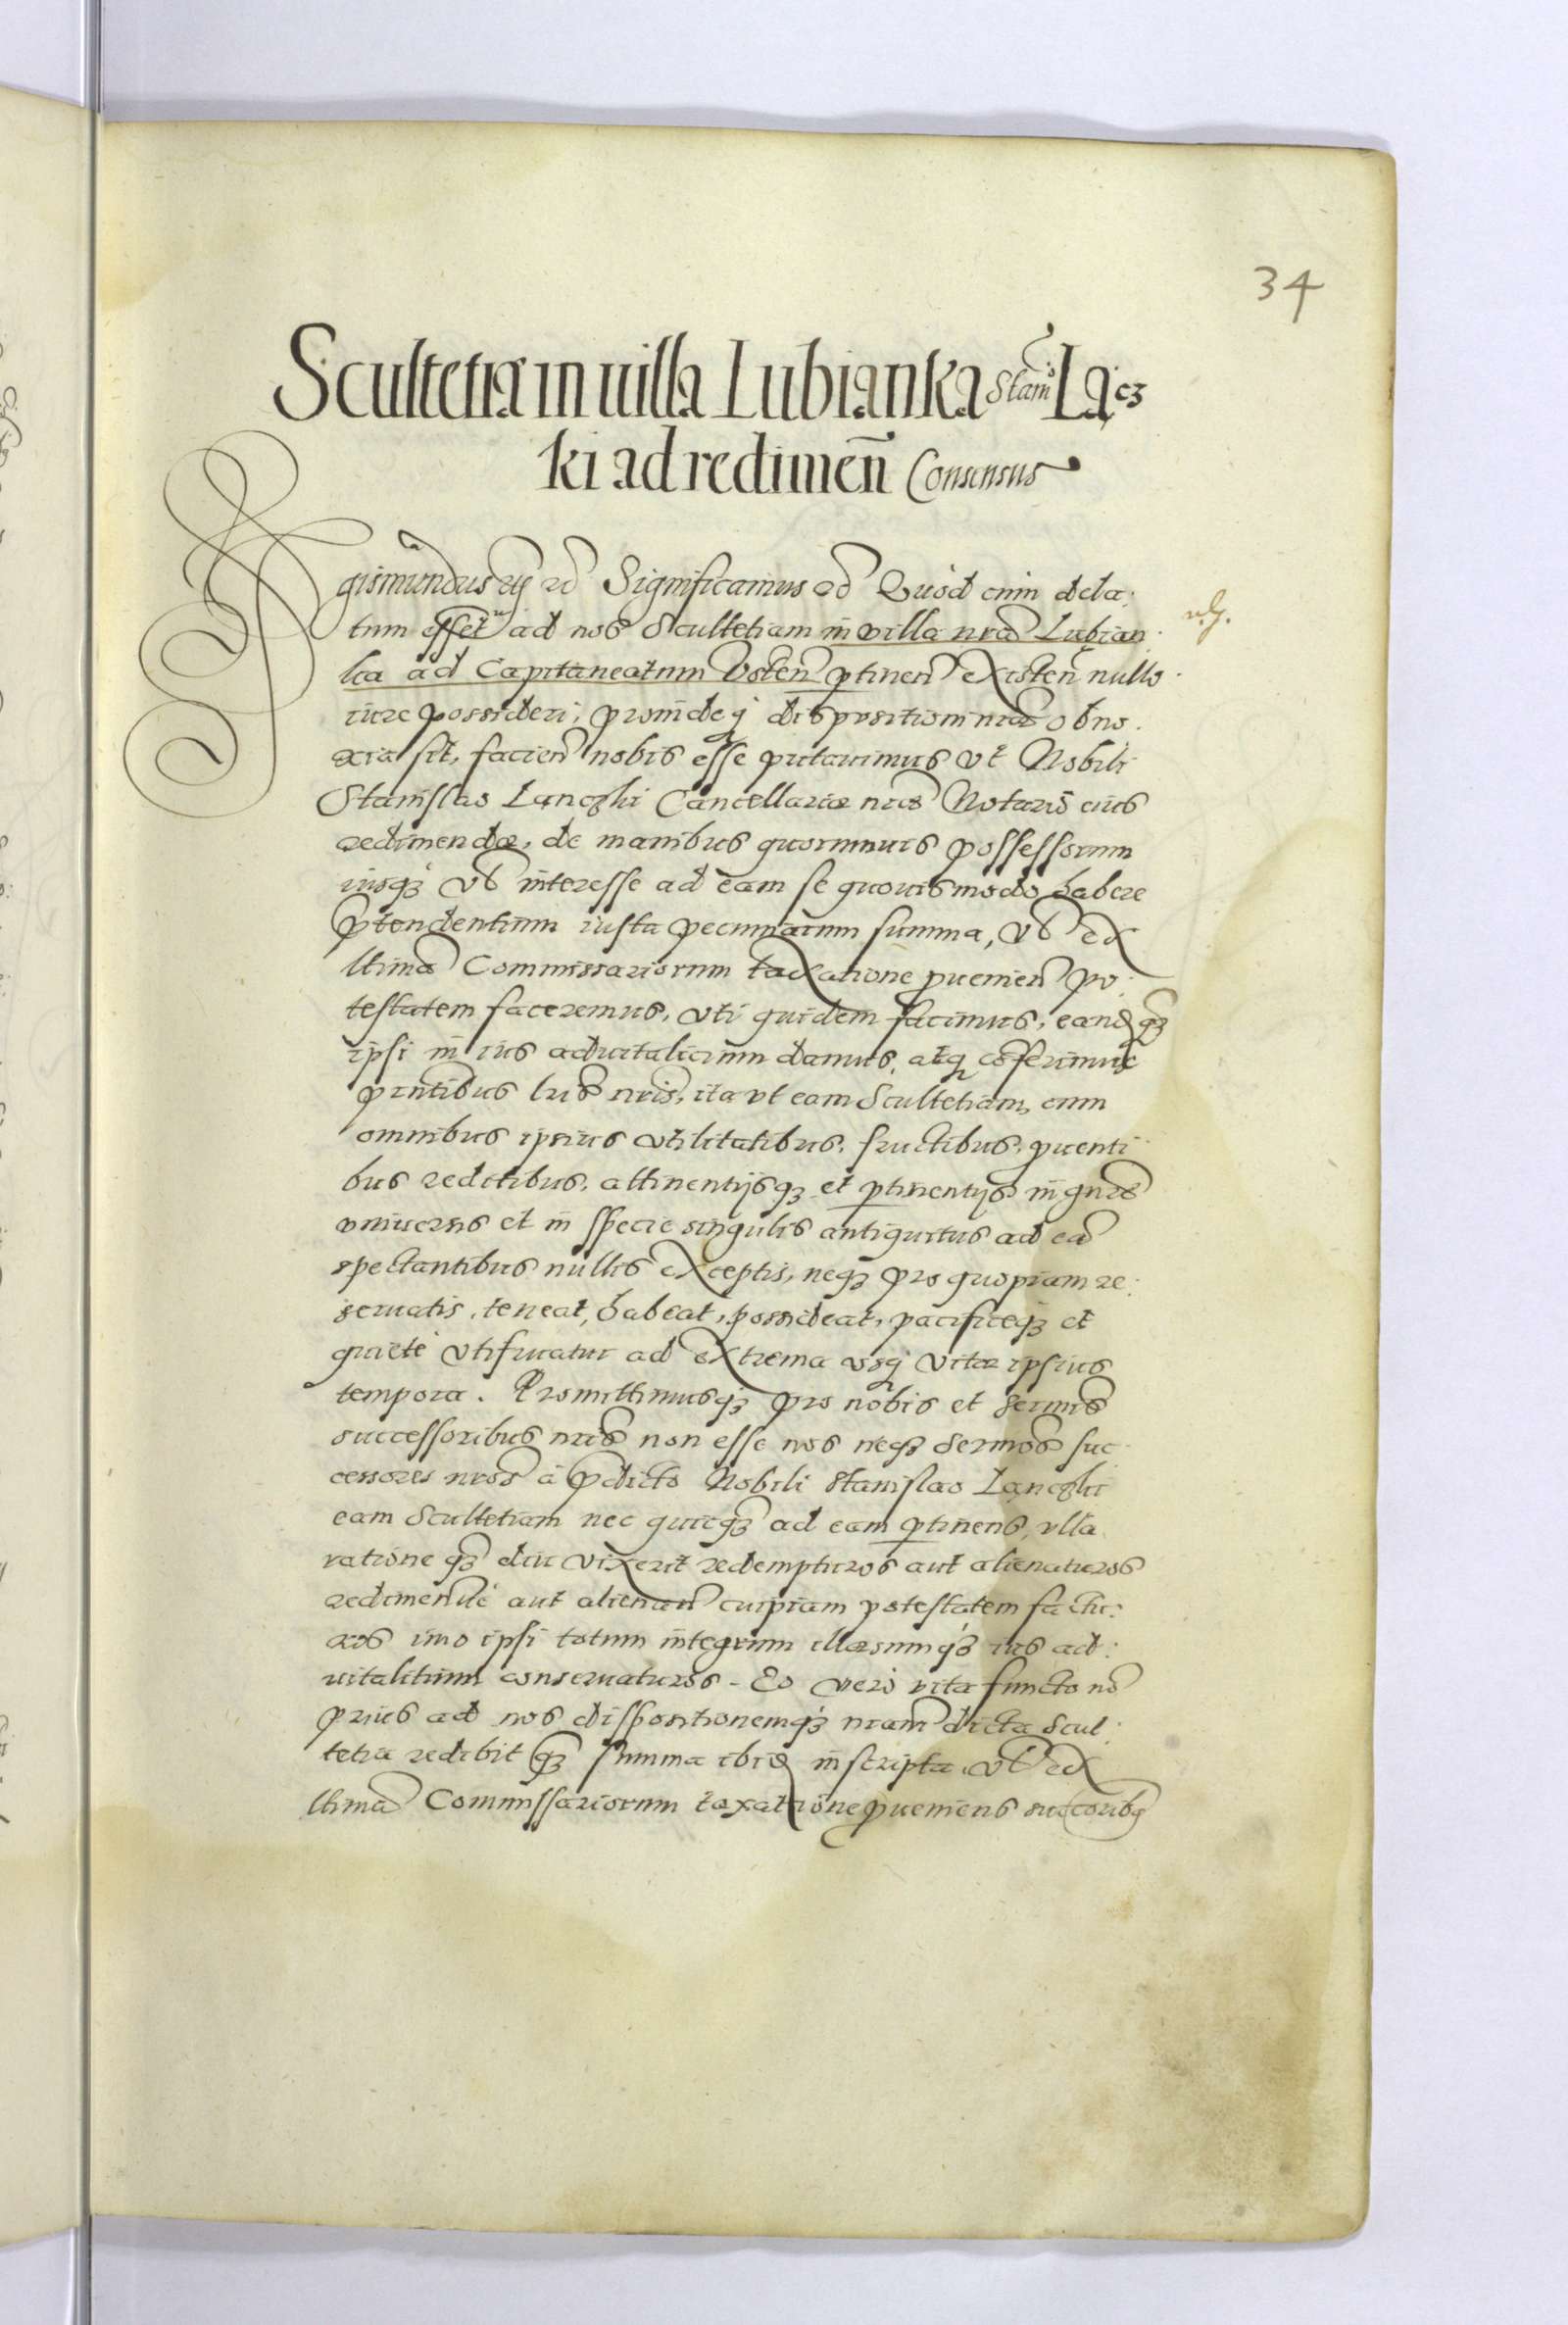 34
Scultetia in uilla Lubianka Stanis Łącz
ki ad redimen̄ Consensus
Sigismundus etc Significamus Quod cum dela:
tum esset ad nos Scultetiam in villa nrā Lubian
ka ad Capitaneatum Vsten ptinen existen nullo
iure possideri, proinde q dispositioni nrae obno
xia sit, facien nobis esse putauimus vt Nobili
Stanislao Łączki Cancellariae nrae Notario eius
redimendae, de manibus quorumuis possessorum
iusq vel interesse ad eam se quouis modo habere
ptendentium iusta pecuniarum summa, vel ex
ltima Commissariorum taxatione puenien po
testatem faceremus, vti quidem facimus, eandq
ipsi in ius aduitalicium damus, atq coferimus
pntibus lris nris, ita vt eam Scultetiam, cum
omnibus ipsius vtilitatibus, fructibus, puenti
bus reditibus, attinentijsq et ptinentijs in gnre
vniuersis et in specie singulis antiquitus ad eā
spectantibus nullis exceptis, neq pro quopiam re:
seruatis, teneat, habeat, possideat, pacificeq et
quietè vtifruatur ad extrema vsq vitae ipsius
tempora. Promittimusq pro nobis et sermis
successoribus nris non esse nos neq sermos suc
cessores nros à pdicto Nobili Stanislao Łączki
eam Scultetiam nec quicq ad eam ptinens, vlla
ratione q diu vixerit redempturos aut alienaturos
redimendiuè aut alienan cuipiam potestatem factu:
ros imo ipsi totum integrum illaesumq ius ad:
uitalitium conseruaturos. Eo verò vita functo nō
prius ad nos dispositionemq nram dicta Scul
tetia redibit q summa ibid inscripta, vel ex
ltima Commissariorum taxatione pueniens succoribq